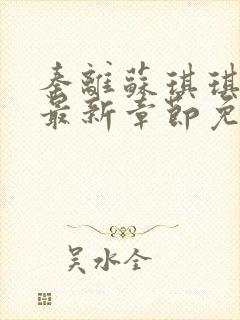 秦離蘇琪琪
最新章節免
吴水全